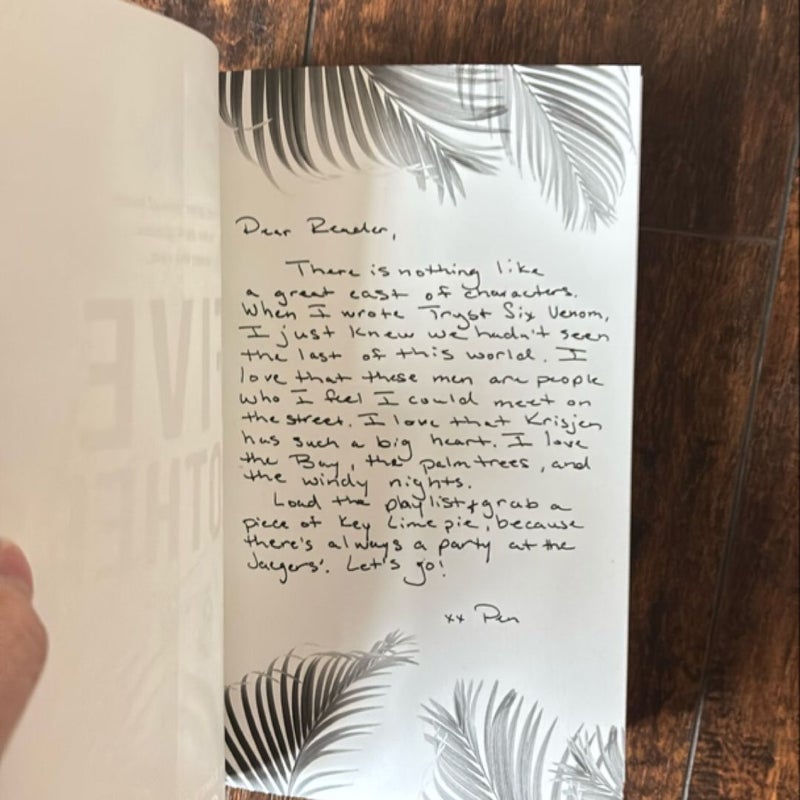 Dear Reader,
There is nothing like
a great cast of characters.
When I wrote Tryst Six Venom,
I just knew we hadn't seen
the last of this world. I
love that these men are people
who I feel I could meet on
the street. I love that Krisjen
has such a big heart. I love
the Bay, the palm trees, and
the windy nights.
Load the playlist + grab a
piece of Key Lime pie, because
there's always a party at the
Jaegers'. Let's go!
xx Pen
FIVE
OTHE